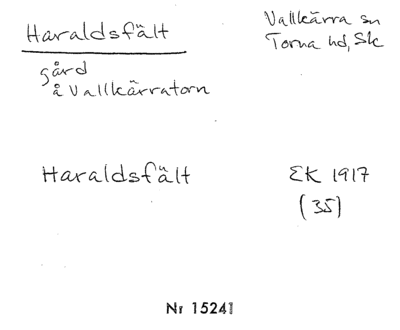 Haraldsfält
Vallkärra sn
Torna hd, Sk
gård
å Vallkärratorn
Haraldsfält
EK 1917
(35)
Nr 15241